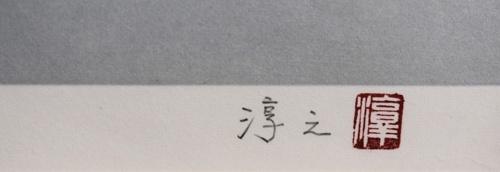 淳之 淳